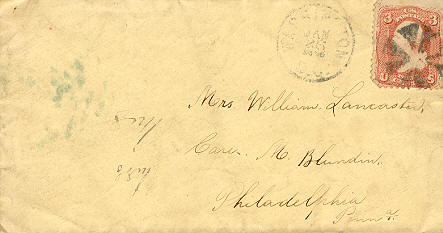 WASHINGTON
JAN
D.C.
3 3
U S
Mrs William Lancaster,
Care. M. Blundin.
Philadelphia
Penna.